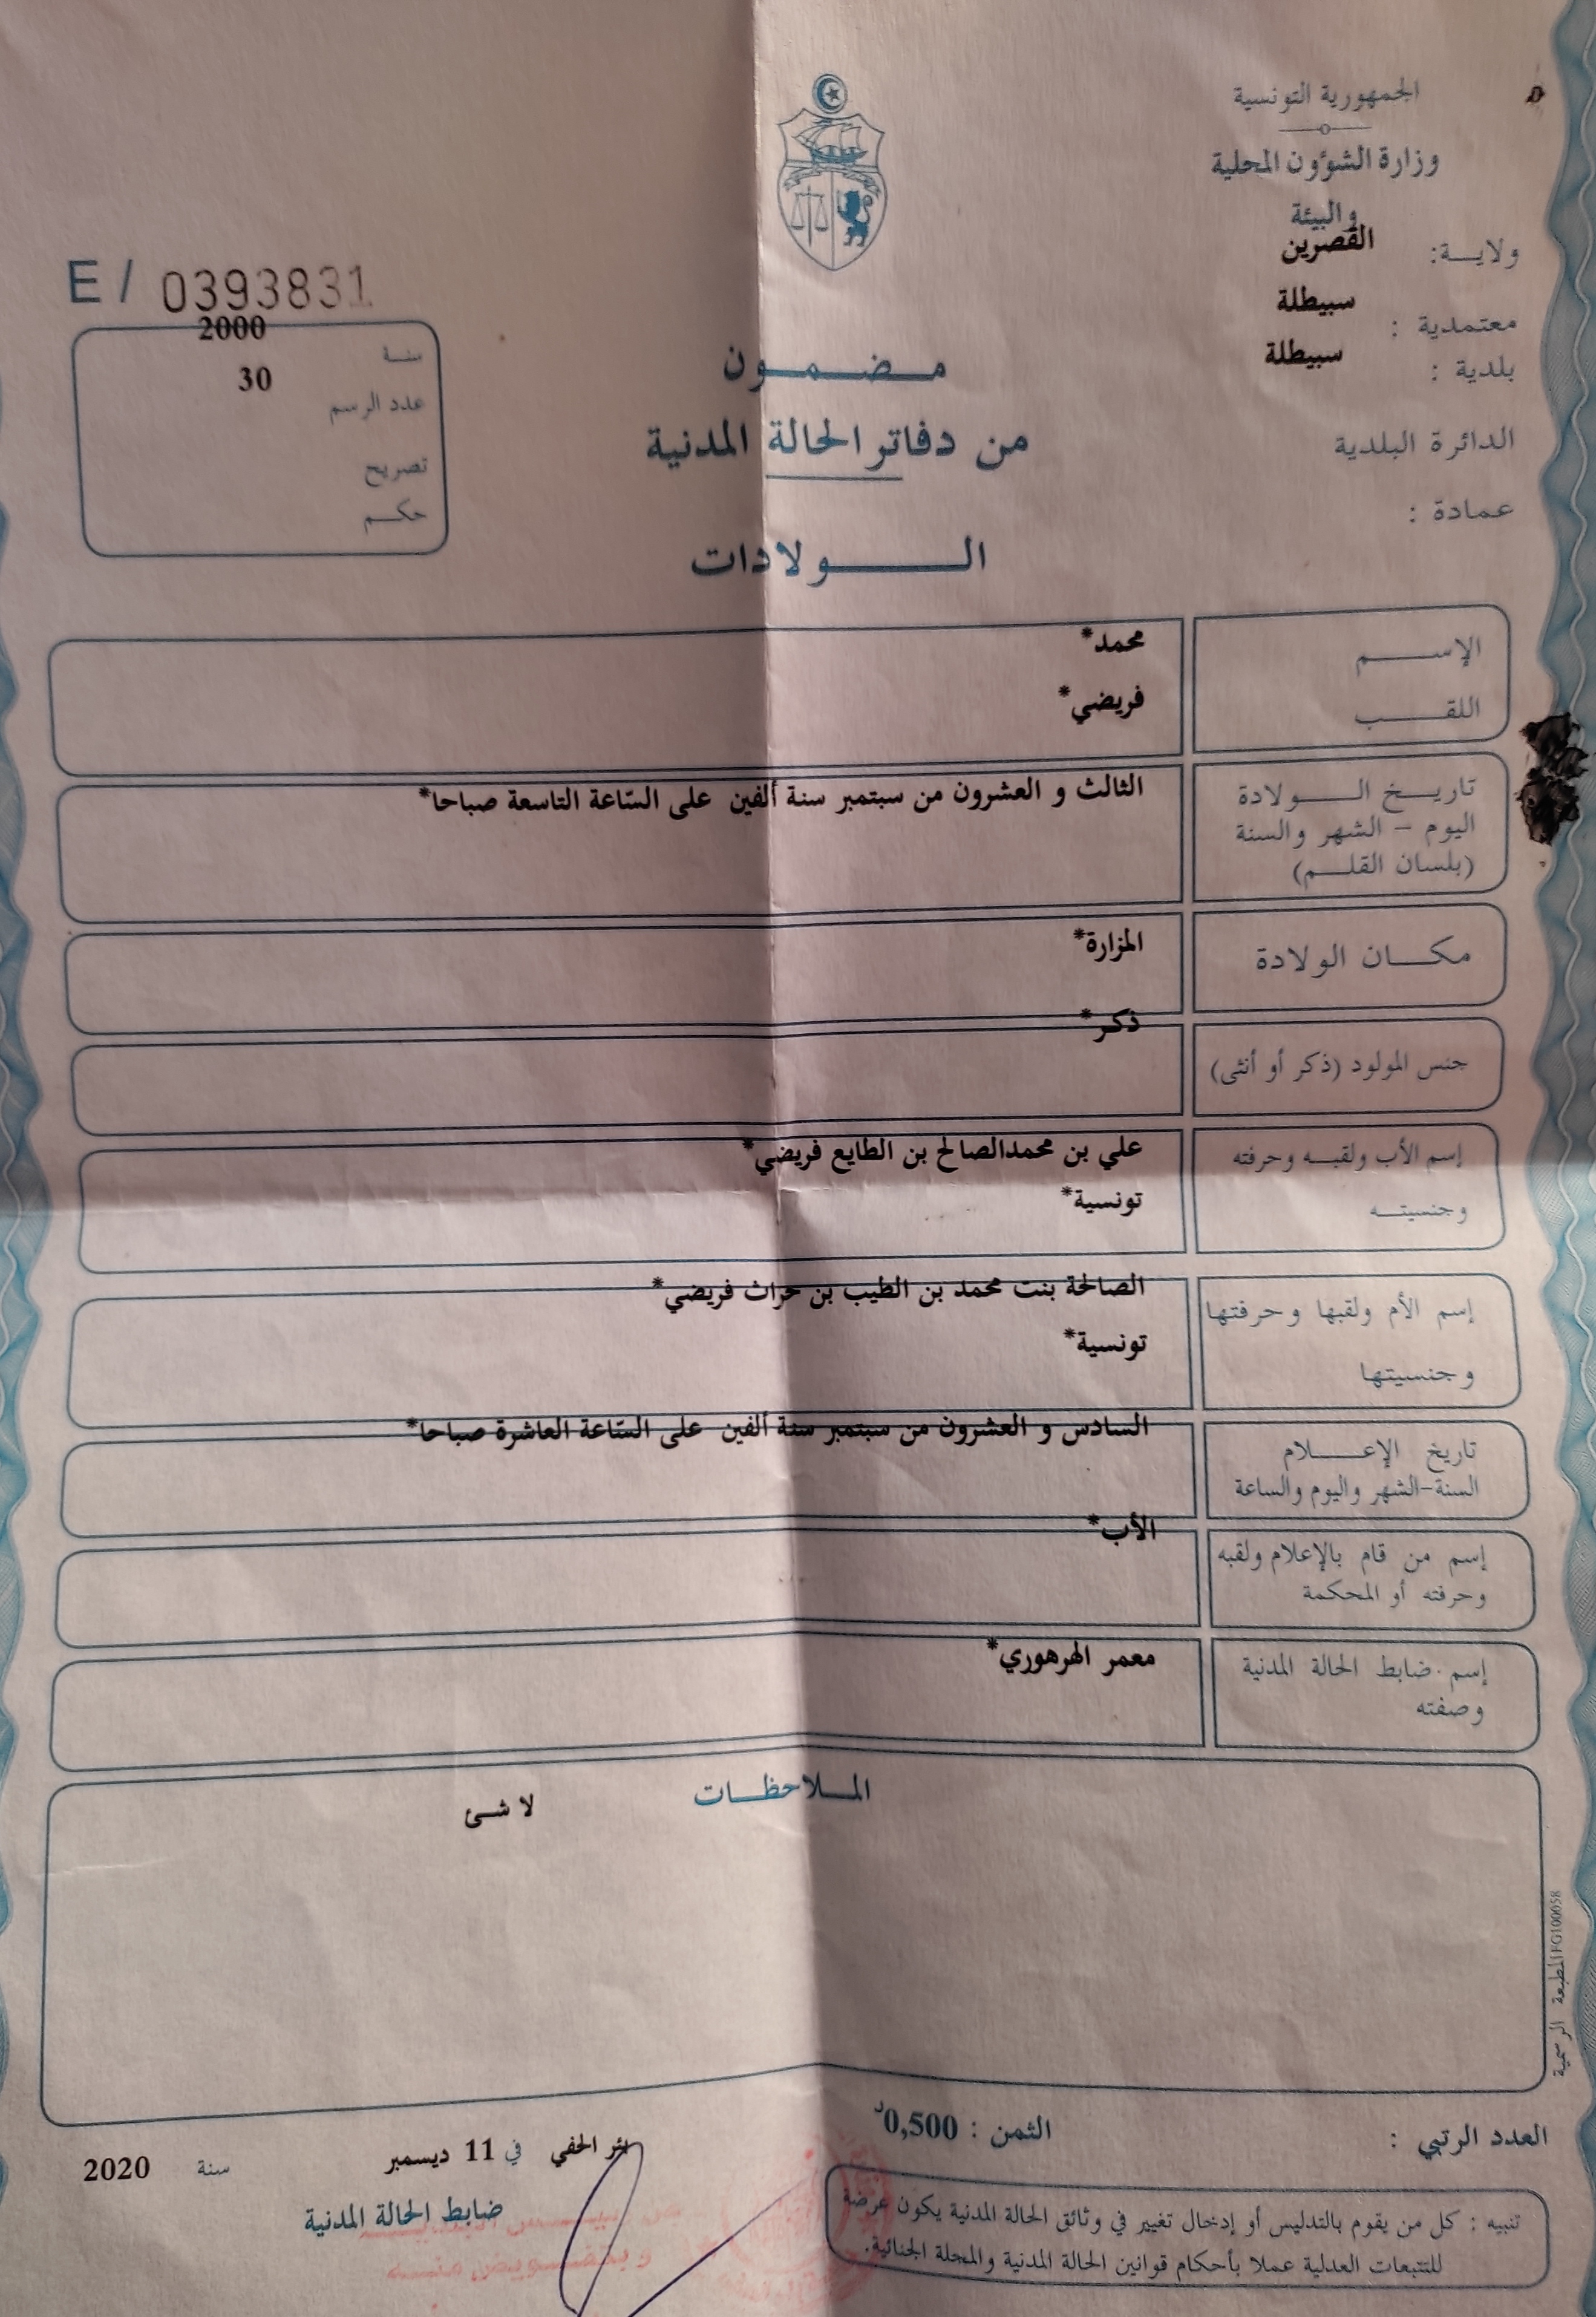 الجمهورية التونسية
وزارة الشؤون المحلية
والبيئة
ولايـــة: القصرين
معتمدية : سبيطلة
بلدية : سبيطلة
الدائرة البلدية
عمادة :
E / 0393831
سنـة 2000
عدد الرسم 30
تصريح
حكـــم
مـضـمـون
من دفاتر الحالة المدنية
الـــولادات
الإســـــم محمد*
اللقــــب فريضي*
تاريـخ الــــولادة الثالث و العشرون من سبتمبر سنة ألفين على الساعة التاسعة صباحا*
اليوم – الشهر والسنة
(بلسان القلـــم)
مكـــان الولادة المزارة*
جنس المولود (ذكر أو أنثى) ذكر*
إسم الأب ولقبـه وحرفته علي بن محمدالصالح بن الطايع فريضي*
وجنسيتــه تونسية*
إسم الأم ولقبها وحرفتها الصالحة بنت محمد بن الطيب بن حراث فريضي*
وجنسيتها تونسية*
تاريخ الإعـــــلام السادس و العشرون من سبتمبر سنة ألفين على الساعة العاشرة صباحا*
السنة-الشهر واليوم والساعة
إسم من قام بالإعلام ولقبه الأب*
وحرفته أو المحكمة
إسم ضابط الحالة المدنية معمر الهرهوري*
وصفته
المـلاحظـات
لا شئ
المطبعة الرسمية FG100658
العدد الرتبي :
الثمن : 0,500 د
الحفي في 11 ديسمبر سنة 2020
ضابط الحالة المدنية
تنبيه : كل من يقوم بالتدليس أو إدخال تغيير في وثائق الحالة المدنية يكون عرضة
للتتبعات العدلية عملا بأحكام قوانين الحالة المدنية والمجلة الجنائية.